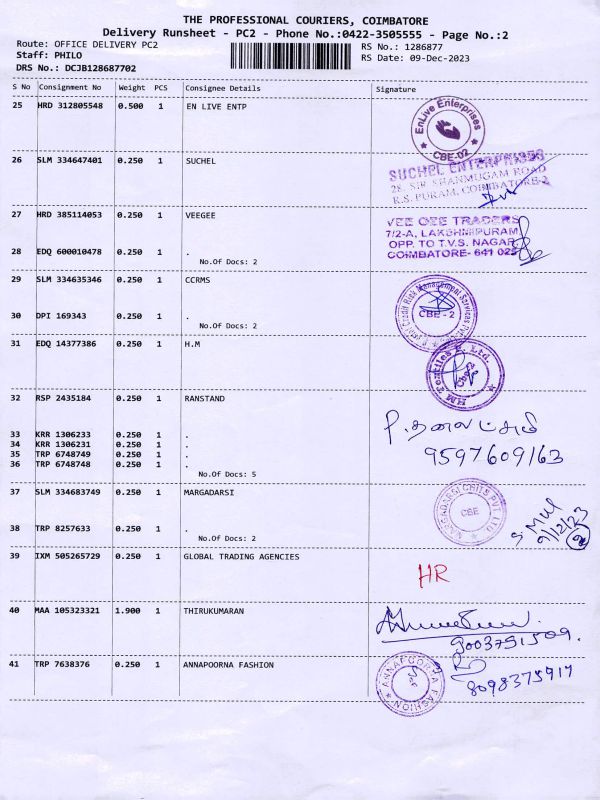 THE PROFESSIONAL COURIERS, COIMBATORE
Delivery Runsheet - PC2 - Phone No.:0422-3505555 - Page No.:2
Route: OFFICE DELIVERY PC2
RS No.: 1286877
Staff: PHILO
RS Date: 09-Dec-2023
DRS No.: DCJB128687702
S No Consignment No Weight PCS Consignee Details Signature
25 HRD 312805548 0.500 1 EN LIVE ENTP
EnLive Enterprises
CBE-02
26 SLM 334647401 0.250 1 SUCHEL
SUCHEL ENTERPRISES
28, SIR SHANMUGAM ROAD
R.S. PURAM, COIMBATORE-2
27 HRD 385114053 0.250 1 VEEGEE
VEE GEE TRADERS
7/2-A, LAKSHMIPURAM
OPP. TO T.V.S. NAGAR
COIMBATORE- 641 025
28 EDQ 600010478 0.250 1 .
No.Of Docs: 2
29 SLM 334635346 0.250 1 CCRMS
Credit Risk Management Services
CBE - 2
30 DPI 169343 0.250 1 .
No.Of Docs: 2
31 EDQ 14377386 0.250 1 H.M
HM Textiles P. Ltd.
32 RSP 2435184 0.250 1 RANSTAND
9597609163
33 KRR 1306233 0.250 1 .
34 KRR 1306231 0.250 1 .
35 TRP 6748749 0.250 1 .
36 TRP 6748748 0.250 1 .
No.Of Docs: 5
37 SLM 334683749 0.250 1 MARGADARSI
MARGADARSI CHITS PVT. LTD
CBE
9/12/23
38 TRP 8257633 0.250 1 .
No.Of Docs: 2
39 IXM 505265729 0.250 1 GLOBAL TRADING AGENCIES
HR
40 MAA 105323321 1.900 1 THIRUKUMARAN
9003751509.
41 TRP 7638376 0.250 1 ANNAPOORNA FASHION
ANNAPOORNA FASHION
8098375917